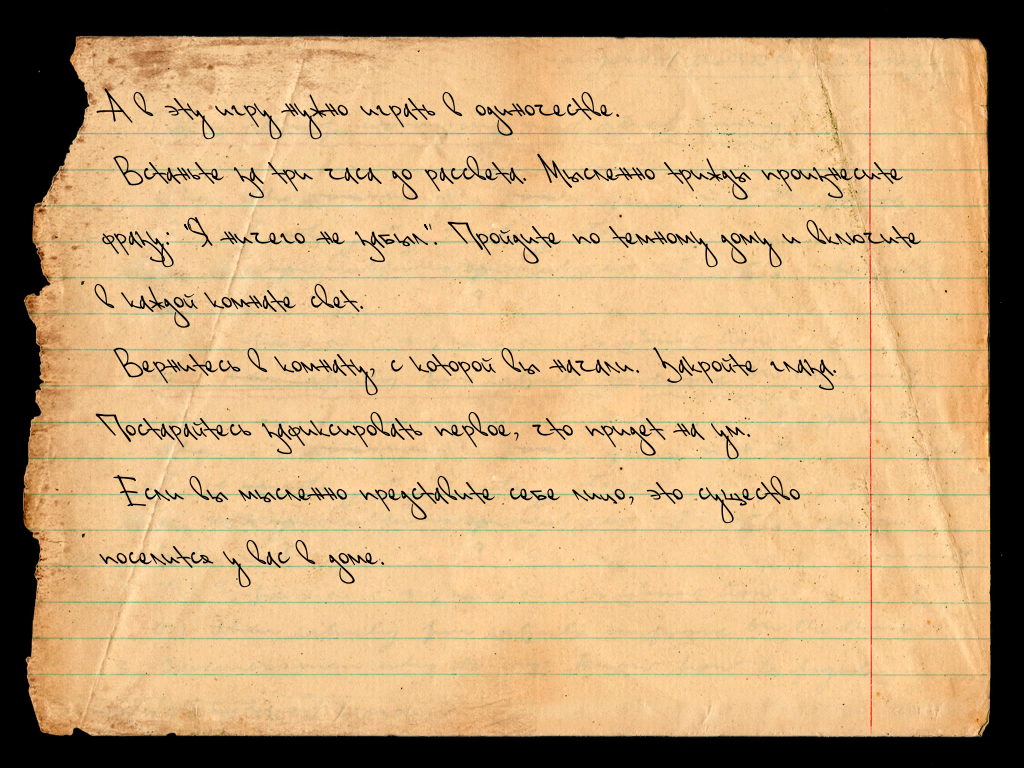 А в эту игру нужно играть в одиночестве.
Встаньте за три часа до рассвета. Мысленно трижды произнесите
фразу: "Я ничего не забыл". Пройдите по темному дому и включите
в каждой комнате свет.
Вернитесь в комнату, с которой вы начали. Закройте глаза.
Постарайтесь зафиксировать первое, что придет на ум.
Если вы мысленно представите себе лицо, это существо
поселится у вас в доме.